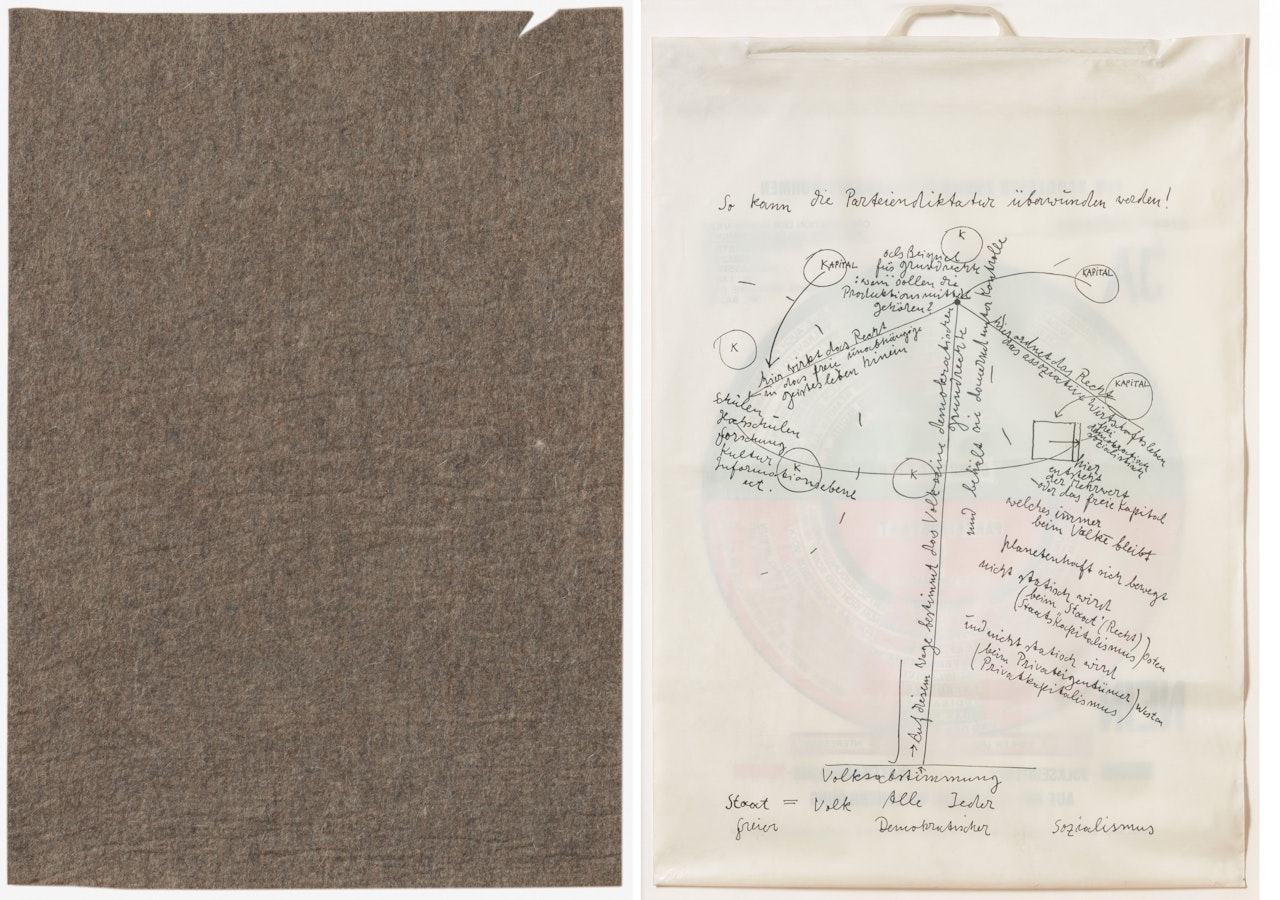 So kann die Parteiendiktatur überwunden werden!
K
KAPITAL
KAPITAL
als Beispiel
für grundrechte
: wem sollen die
Produktionsmittel
gehören?
K
hier wirkt das Recht
in das freie unabhängige
geistesleben hinein
hier ordnet das Recht
das assoziative Wirtschaftsleben
KAPITAL
frei
demokratisch
sozialistisch
Schulen
Hochschulen
Forschung
Kultur
Informationsebene
ect.
K
K
hier
entsteht
der Mehrwert
oder das freie Kapital
welches immer
beim Volke bleibt
planetenhaft sich bewegt
nicht statisch wird
beim Staat (Recht)
(Staatskapitalismus) Osten
und nicht statisch wird
(beim Privateigentümer)
(Privatkapitalismus) Westen
Auf diesem Wege bestimmt das Volk seine demokratischen
grundrechte
und behält sie dauernd unter Kontrolle
Volksabstimmung
Staat = Volk Alle Jeder
freier Demokratischer Sozialismus